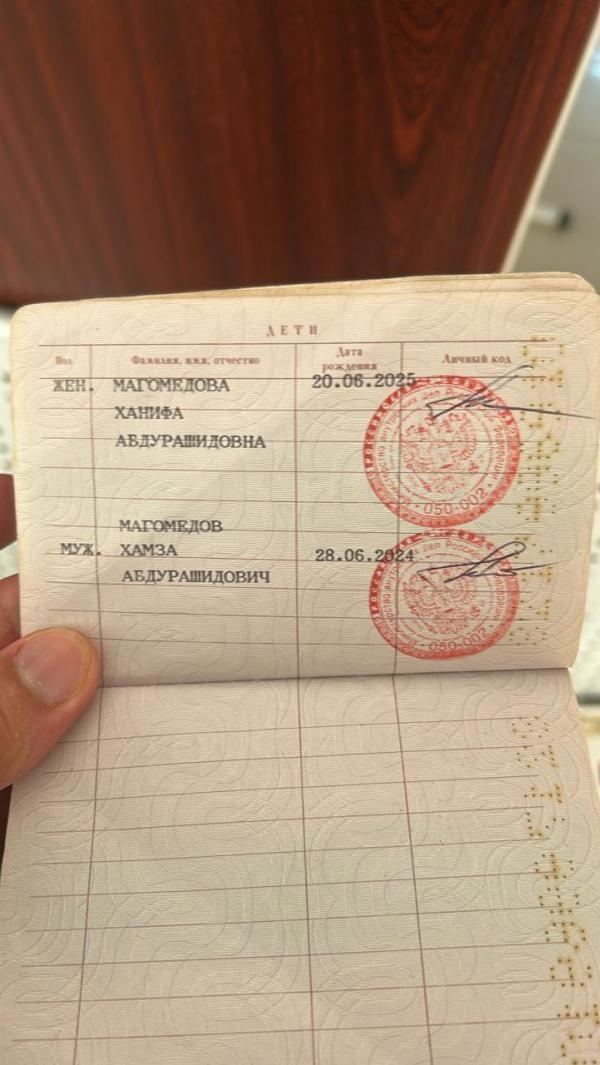 ДЕТИ
Пол Фамилия, имя, отчество Дата рождения Личный код
ЖЕН. МАГОМЕДОВА 20.06.2025
ХАНИФА
АБДУРАШИДОВНА
050-002
МАГОМЕДОВ
МУЖ. ХАМЗА 28.06.2024
АБДУРАШИДОВИЧ
050-002